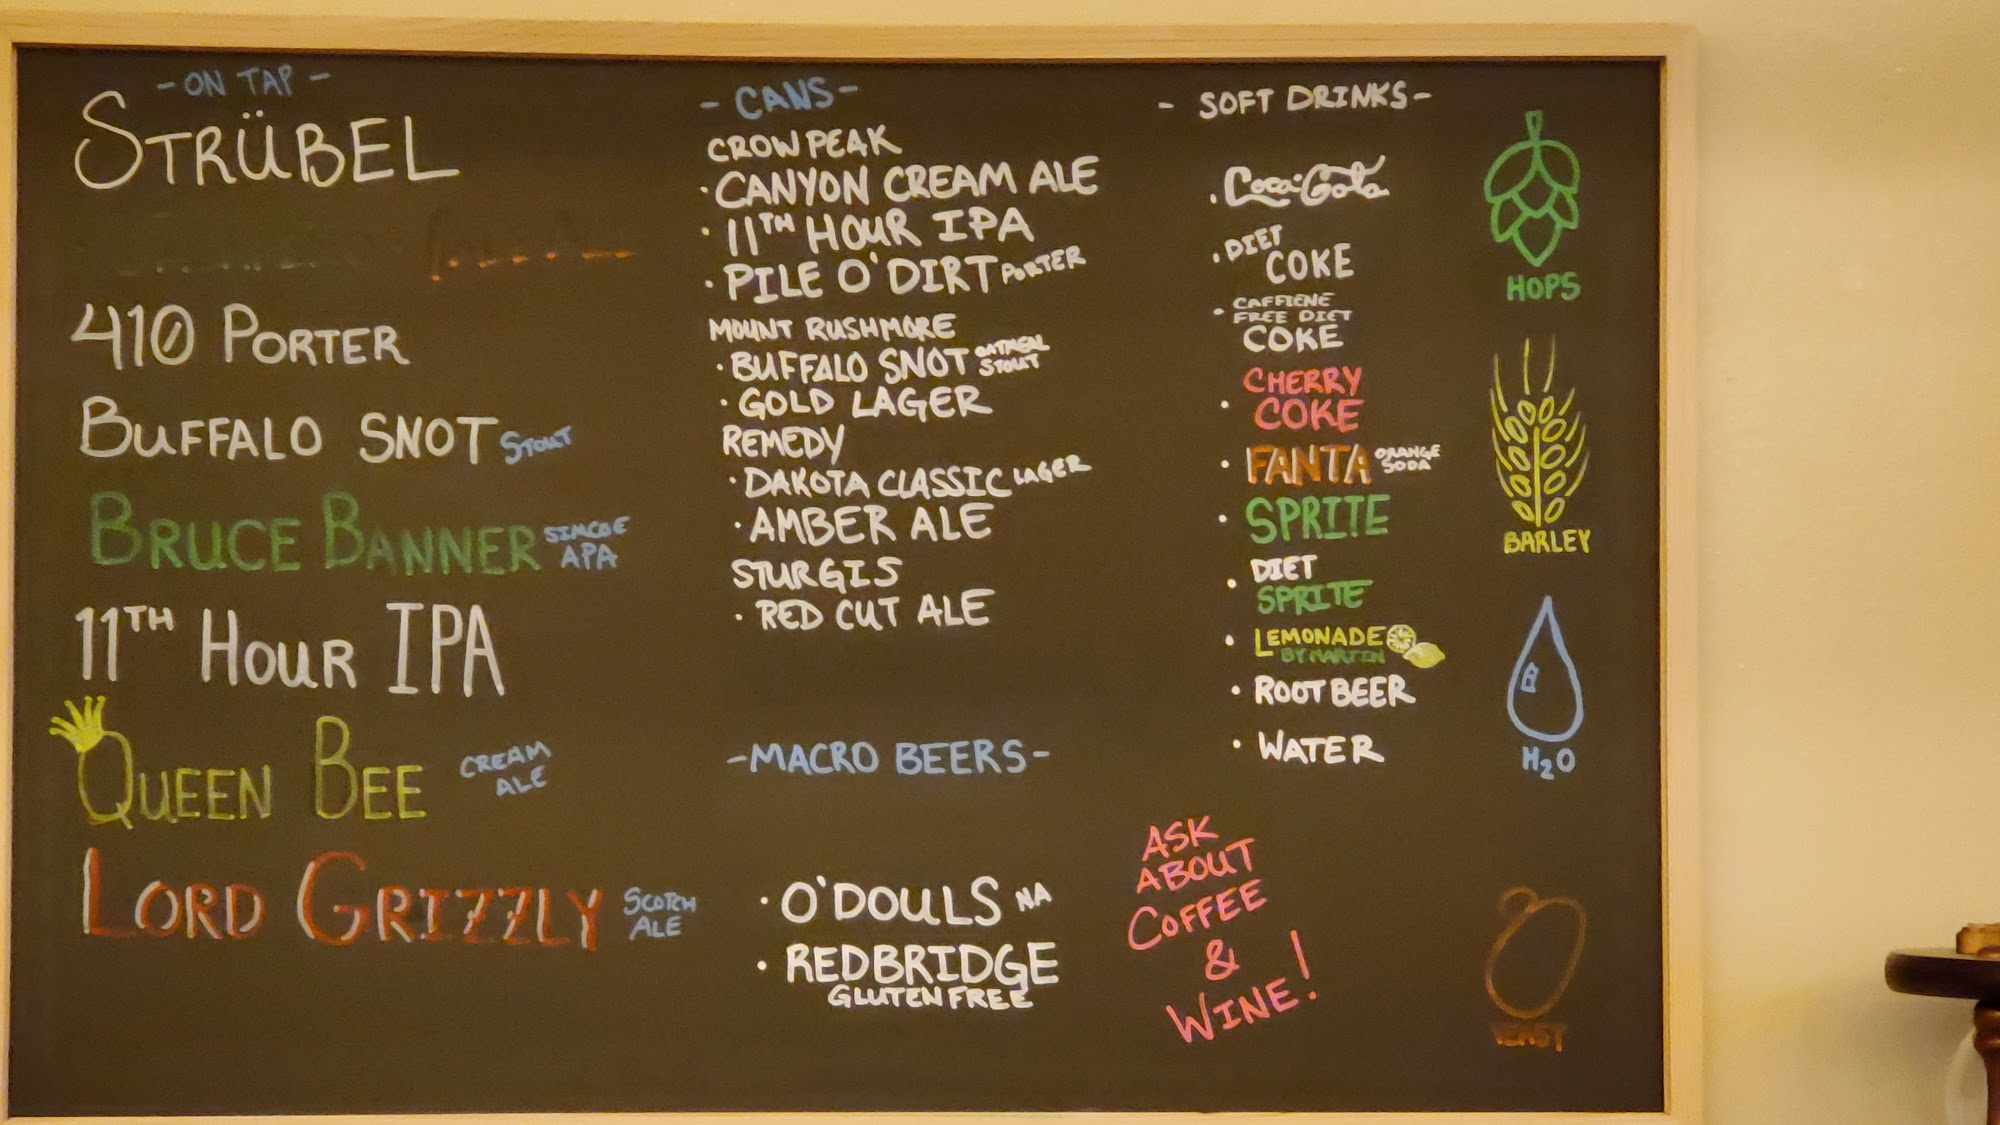 - ON TAP -
STRÜBEL
410 PORTER
BUFFALO SNOT STOUT
BRUCE BANNER SIMCOE APA
11TH HOUR IPA
QUEEN BEE CREAM ALE
LORD GRIZZLY SCOTCH ALE
- CANS -
CROW PEAK
· CANYON CREAM ALE
· 11TH HOUR IPA
· PILE O'DIRT PORTER
MOUNT RUSHMORE
· BUFFALO SNOT OATMEAL STOUT
· GOLD LAGER
REMEDY
· DAKOTA CLASSIC LAGER
· AMBER ALE
STURGIS
· RED CUT ALE
- MACRO BEERS -
· O'DOULS NA
· REDBRIDGE
GLUTEN FREE
- SOFT DRINKS -
· Coca-Cola
· DIET
COKE
· CAFFIENE
FREE DIET
COKE
CHERRY
· COKE
· FANTA ORANGE SODA
· SPRITE
· DIET
SPRITE
· LEMONADE
BY MARTIN
· ROOT BEER
· WATER
ASK
ABOUT
COFFEE
&
WINE!
HOPS
BARLEY
H2O
YEAST